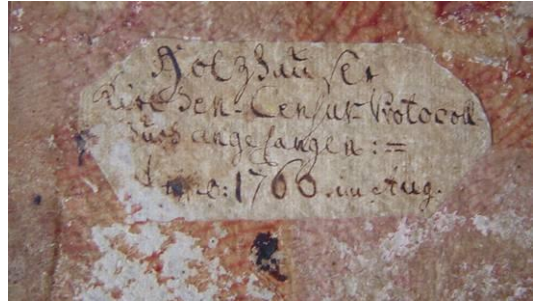 Holzhaußer
Kirchen-Censur-Protocoll
angefangen:=
Anno: 1760. im Aug.